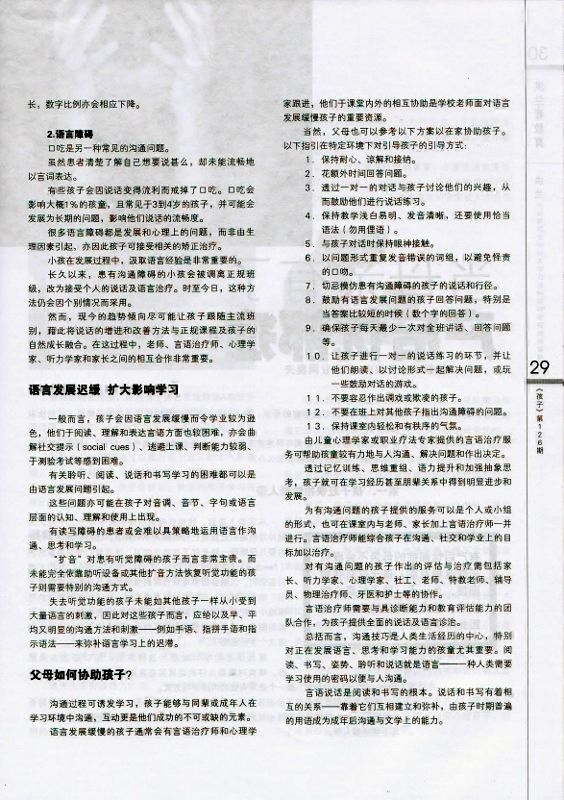 长，数字比例亦会相应下降。
2.语言障碍
口吃是另一种常见的沟通问题。
虽然患者清楚了解自己想要说甚么，却未能流畅地
以言词表达。
有些孩子会因说话变得流利而戒掉了口吃。口吃会
影响大概1%的孩童，且常见于3到4岁的孩子，并可能会
发展为长期的问题，影响他们说话的流畅度。
很多语言障碍都是发展和心理上的问题，而非由生
理因素引起，亦因此孩子可接受相关的矫正治疗。
小孩在发展过程中，汲取语言经验是非常重要的。
长久以来，患有沟通障碍的小孩会被调离正规班
级，改为接受个人的说话及语言治疗。时至今日，这种方
法仍会因个别情况而采用。
然而，现今的趋势倾向尽可能让孩子跟随主流班
别，藉此将说话的增进和改善方法与正规课程及孩子的
自然成长融合。在这过程中，老师、言语治疗师、心理学
家、听力学家和家长之间的相互合作非常重要。
语言发展迟缓 扩大影响学习
一般而言，孩子会因语言发展缓慢而令学业较为逊
色，他们于阅读、理解和表达言语方面也较困难，亦会曲
解社交提示（social cues）、逃避上课、判断能力较弱、
于测验考试等感到困难。
有关聆听、阅读、说话和书写学习的困难都可以是
由语言发展问题引起。
这些问题亦可能在孩子对音调、音节、字句或语言
层面的认知、理解和使用上出现。
有读写障碍的患者或会难以具策略地运用语言作沟
通、思考和学习。
“扩音”对患有听觉障碍的孩子而言非常宝贵。而
未能完全依靠助听设备或其他扩音方法恢复听觉功能的孩
子则需要特别的沟通方式。
失去听觉功能的孩子未能如其他孩子一样从小受到
大量语言的刺激，因此对这些孩子而言，应给以及早、平
均又明显的沟通方法和刺激——例如手语、指拼手语和指
示语法——来弥补语言学习上的迟滞。
父母如何协助孩子？
沟通过程可诱发学习，孩子能够与同辈或成年人在
学习环境中沟通，互动更是他们成功的不可或缺的元素。
语言发展缓慢的孩子通常会有言语治疗师和心理学
家跟进，他们于课堂内外的相互协助是学校老师面对语言
发展缓慢孩子的重要资源。
当然，父母也可以参考以下方案以在家协助孩子。
以下指引在特定环境下对引导孩子的引导方式：
1．保持耐心、谅解和接纳。
2．花额外时间回答问题。
3．透过一对一的对话与孩子讨论他们的兴趣，从
而鼓励他们进行说话练习。
4．保持教学浅白易明、发音清晰，还要使用恰当
语法（勿用俚语）。
5．与孩子对话时保持眼神接触。
6．以问题形式重复发音错误的词组，以避免怪责
的口吻。
7．切忌模仿患有沟通障碍的孩子的说话和行径。
8．鼓励有语言发展问题的孩子回答问题，特别是
当答案比较短的时候（数个字的回答）。
9．确保孩子每天最少一次对全班讲话、回答问题
等。
10．让孩子进行一对一的说话练习的环节，并让
他们朗读、以讨论形式一起解决问题，或玩
一些鼓励对话的游戏。
11．不要容忍作出调戏或欺凌的孩子。
12．不要在班上对其他孩子指出沟通障碍的问题。
13．保持课室内轻松和有秩序的气氛。
由儿童心理学家或职业疗法专家提供的言语治疗服
务可帮助孩童较有力地与人沟通、解决问题和作出决定。
透过记忆训练、思维重组、语力提升和加强抽象思
考，孩子就可在学习经历甚至朋辈关系中得到明显进步和
发展。
为有沟通问题的孩子提供的服务可以是个人或小组
的形式，也可在课室内与老师、家长加上言语治疗师一并
进行。言语治疗师能综合孩子在沟通、社交和学业上的目
标加以治疗。
对有沟通问题的孩子作出的评估与治疗需包括家
长、听力学家、心理学家、社工、老师、特教老师、辅导
员、物理治疗师、牙医和护士等的协作。
言语治疗师需要与具诊断能力和教育评估能力的团
队合作，为孩子提供全面的说话及语言诊治。
总括而言，沟通技巧是人类生活经历的中心，特别
对正在发展语言、思考和学习能力的孩童尤其重要。阅
读、书写、姿势、聆听和说话就是语言——一种人类需要
学习使用的密码以便与人沟通。
言语说话是阅读和书写的根本。说话和书写有着相
互的关系——靠着它们互相建立和弥补，由孩子时期普遍
的用语成为成年后沟通与文学上的能力。
29
《孩子》第126期